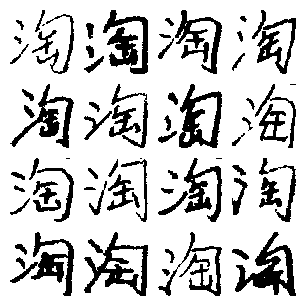 淘淘淘淘
淘淘淘淘
淘淘淘淘
淘淘淘淘